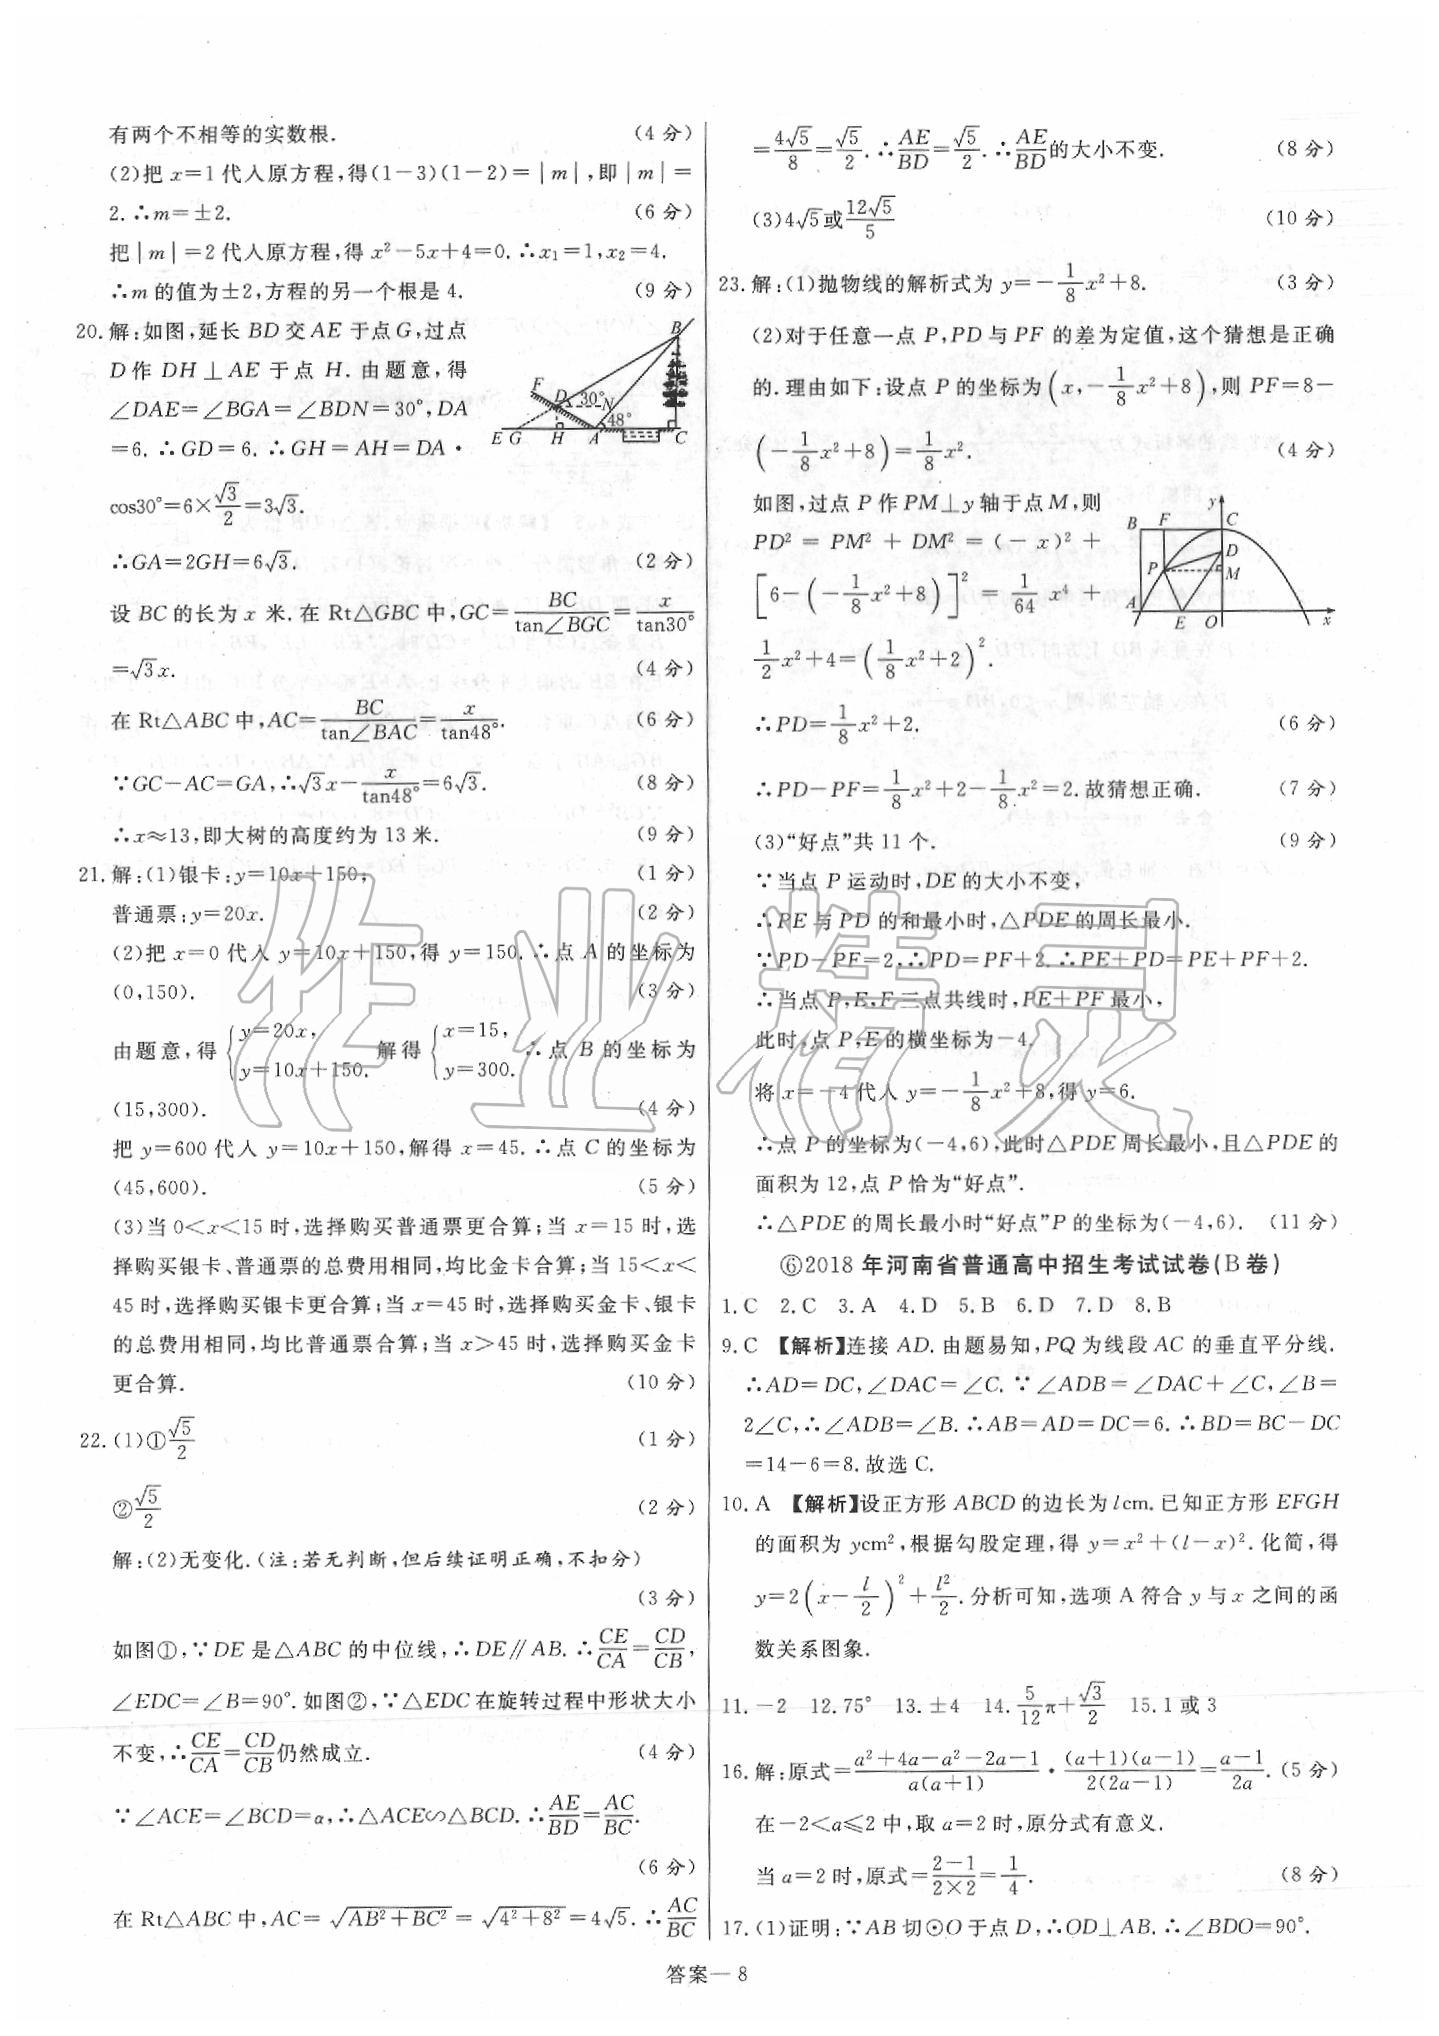 有两个不相等的实数根. (4 分)
(2)把 x=1 代入原方程,得(1-3)(1-2)=|m|,即|m|=
2.∴m=±2. (6 分)
把|m|=2 代入原方程,得 x²-5x+4=0.∴x₁=1,x₂=4.
∴m 的值为±2,方程的另一个根是 4. (9 分)
20.解:如图,延长 BD 交 AE 于点 G,过点
D 作 DH⊥AE 于点 H.由题意,得
∠DAE=∠BGA=∠BDN=30°,DA
=6.∴GD=6.∴GH=AH=DA·
cos30°=6×√3/2=3√3.
B
F
D 30° N
48°
E G H A C
∴GA=2GH=6√3. (2 分)
设 BC 的长为 x 米.在 Rt△GBC 中,GC=BC/tan∠BGC=x/tan30°
=√3x. (4 分)
在 Rt△ABC 中,AC=BC/tan∠BAC=x/tan48°. (6 分)
∵GC-AC=GA,∴√3x-x/tan48°=6√3. (8 分)
∴x≈13,即大树的高度约为 13 米. (9 分)
21.解:(1)银卡:y=10x+150; (1 分)
普通票:y=20x. (2 分)
(2)把 x=0 代入 y=10x+150,得 y=150.∴点 A 的坐标为
(0,150). (3 分)
由题意,得{y=20x, y=10x+150. 解得{x=15, y=300. ∴点 B 的坐标为
(15,300). (4 分)
把 y=600 代入 y=10x+150,解得 x=45.∴点 C 的坐标为
(45,600). (5 分)
(3)当 0<x<15 时,选择购买普通票更合算;当 x=15 时,选
择购买银卡、普通票的总费用相同,均比金卡合算;当 15<x<
45 时,选择购买银卡更合算;当 x=45 时,选择购买金卡、银卡
的总费用相同,均比普通票合算;当 x>45 时,选择购买金卡
更合算. (10 分)
22.(1)①√5/2 (1 分)
②√5/2 (2 分)
解:(2)无变化.(注:若无判断,但后续证明正确,不扣分)
(3 分)
如图①,∵DE 是△ABC 的中位线,∴DE∥AB.∴CE/CA=CD/CB,
∠EDC=∠B=90°.如图②,∵△EDC 在旋转过程中形状大小
不变,∴CE/CA=CD/CB仍然成立. (4 分)
∵∠ACE=∠BCD=α,∴△ACE∽△BCD.∴AE/BD=AC/BC.
(6 分)
在 Rt△ABC 中,AC=√(AB²+BC²)=√(4²+8²)=4√5.∴AC/BC
=4√5/8=√5/2.∴AE/BD=√5/2.∴AE/BD的大小不变. (8 分)
(3)4√5或12√5/5 (10 分)
23.解:(1)抛物线的解析式为 y=-1/8x²+8. (3 分)
(2)对于任意一点 P,PD 与 PF 的差为定值,这个猜想是正确
的.理由如下:设点 P 的坐标为(x,-1/8x²+8),则 PF=8-
(-1/8x²+8)=1/8x². (4 分)
如图,过点 P 作 PM⊥y 轴于点 M,则
PD²=PM²+DM²=(-x)²+
[6-(-1/8x²+8)]²=1/64x⁴+
1/2x²+4=(1/8x²+2)².
y
B F C
D
P M
A E O x
∴PD=1/8x²+2. (6 分)
∴PD-PF=1/8x²+2-1/8x²=2.故猜想正确. (7 分)
(3)“好点”共 11 个. (9 分)
∵当点 P 运动时,DE 的大小不变,
∴PE 与 PD 的和最小时,△PDE 的周长最小.
∵PD-PF=2,∴PD=PF+2.∴PE+PD=PE+PF+2.
∴当点 P,E,F 三点共线时,PE+PF 最小,
此时,点 P,E 的横坐标为-4.
将 x=-4 代入 y=-1/8x²+8,得 y=6.
∴点 P 的坐标为(-4,6),此时△PDE 周长最小,且△PDE 的
面积为 12,点 P 恰为“好点”.
∴△PDE 的周长最小时“好点”P 的坐标为(-4,6). (11 分)
⑥2018 年河南省普通高中招生考试试卷(B 卷)
1.C 2.C 3.A 4.D 5.B 6.D 7.D 8.B
9.C 【解析】连接 AD.由题易知,PQ 为线段 AC 的垂直平分线.
∴AD=DC,∠DAC=∠C.∵∠ADB=∠DAC+∠C,∠B=
2∠C,∴∠ADB=∠B.∴AB=AD=DC=6.∴BD=BC-DC
=14-6=8.故选 C.
10.A 【解析】设正方形 ABCD 的边长为 lcm.已知正方形 EFGH
的面积为 ycm²,根据勾股定理,得 y=x²+(l-x)².化简,得
y=2(x-l/2)²+l²/2.分析可知,选项 A 符合 y 与 x 之间的函
数关系图象.
11.-2 12.75° 13.±4 14.5/12π+√3/2 15.1 或 3
16.解:原式=(a²+4a-a²-2a-1)/(a(a+1))·((a+1)(a-1))/(2(2a-1))=(a-1)/2a. (5 分)
在-2<a≤2 中,取 a=2 时,原分式有意义.
当 a=2 时,原式=(2-1)/(2×2)=1/4. (8 分)
17.(1)证明:∵AB 切⊙O 于点 D,∴OD⊥AB.∴∠BDO=90°.
答案—8
作业精灵